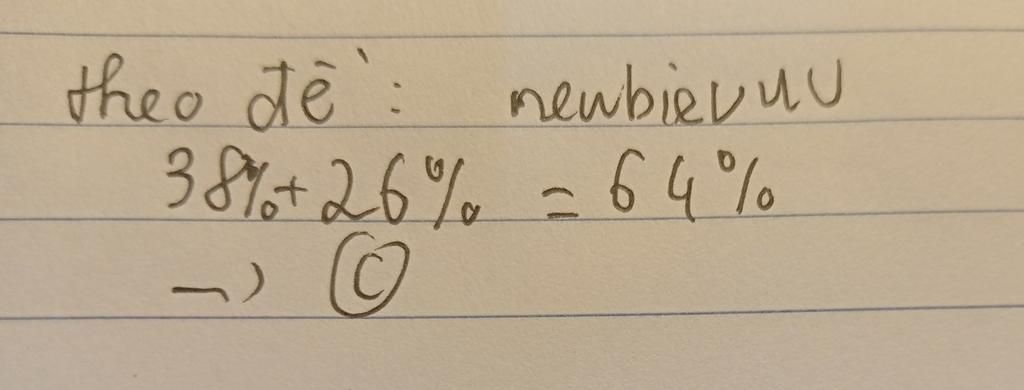 theo đề : newbievuu
38%+26% = 64%
→ C